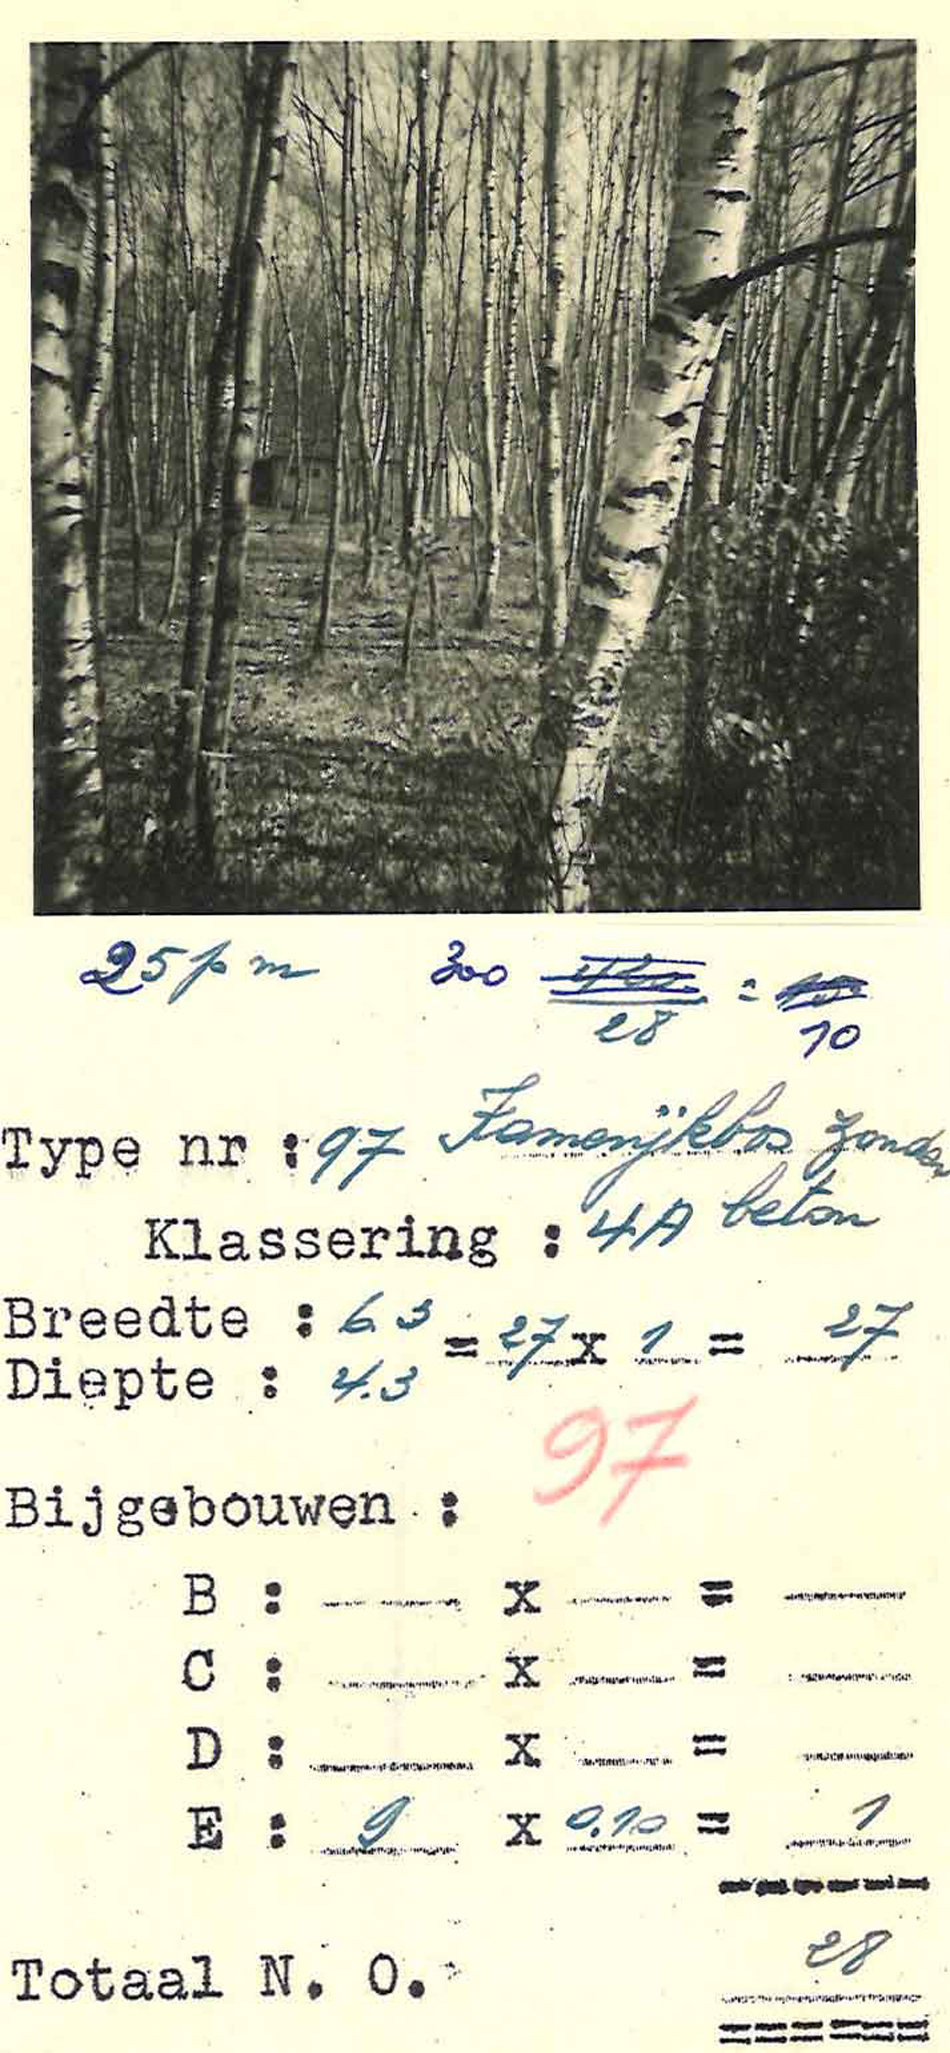 25 p m 300 28 = 10
Type nr : 97 Famerijkbos zonder
Klassering : 4A beton
Breedte : 6.3
= 27 x 1 = 27
Diepte : 4.3
97
Bijgebouwen :
B : x =
C : x =
D : x =
E : 9 x 0.10 = 1
Totaal N. O. 28